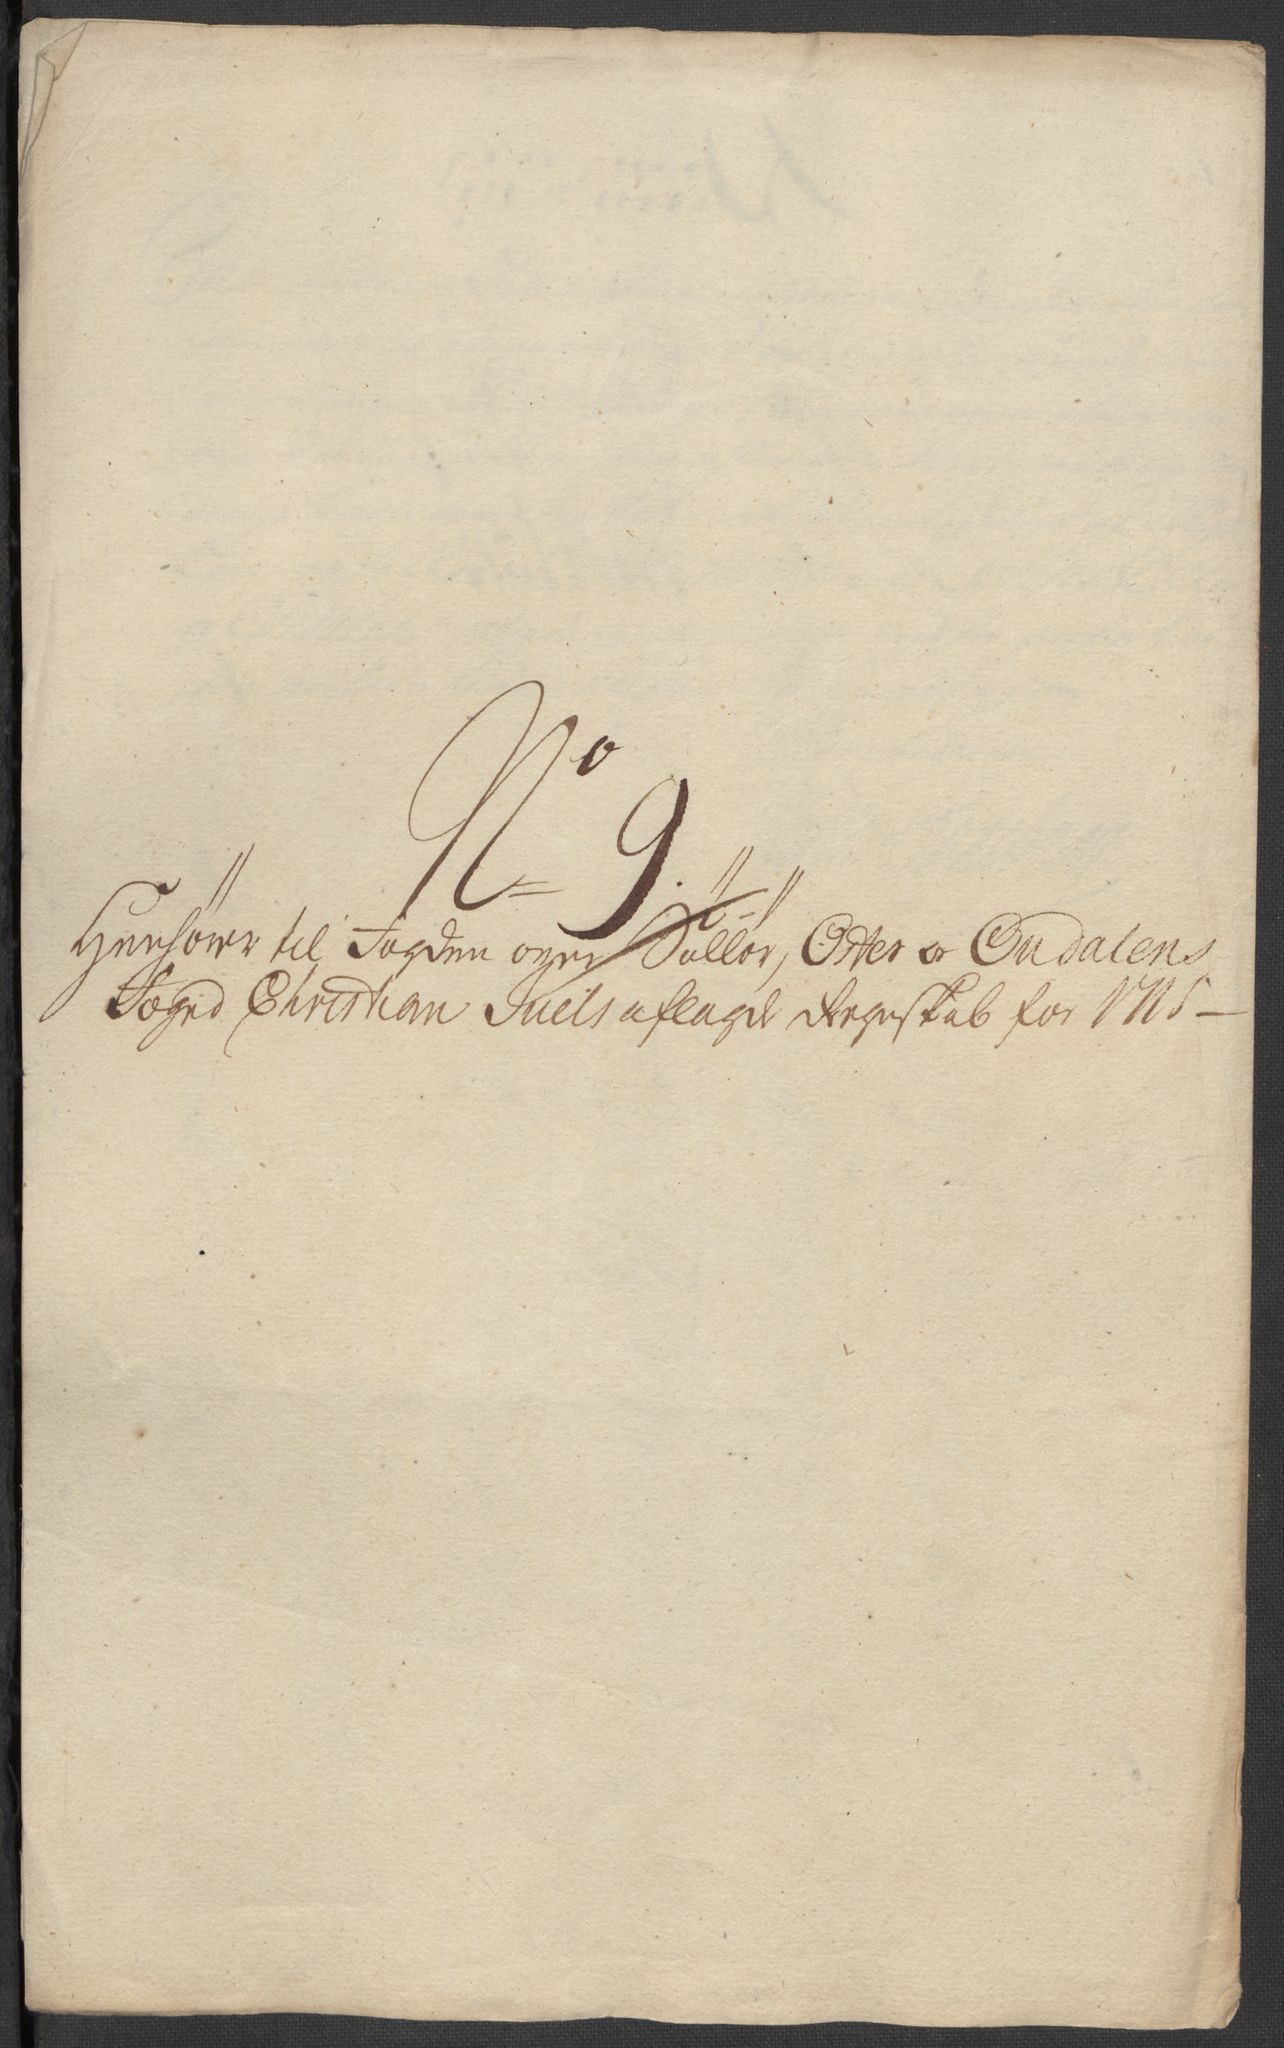 No 9.
Henhörer til Fogden over Sollör, Öster og Oudalens
Fogrd Christian Juels aflagde Regnskab for 1715